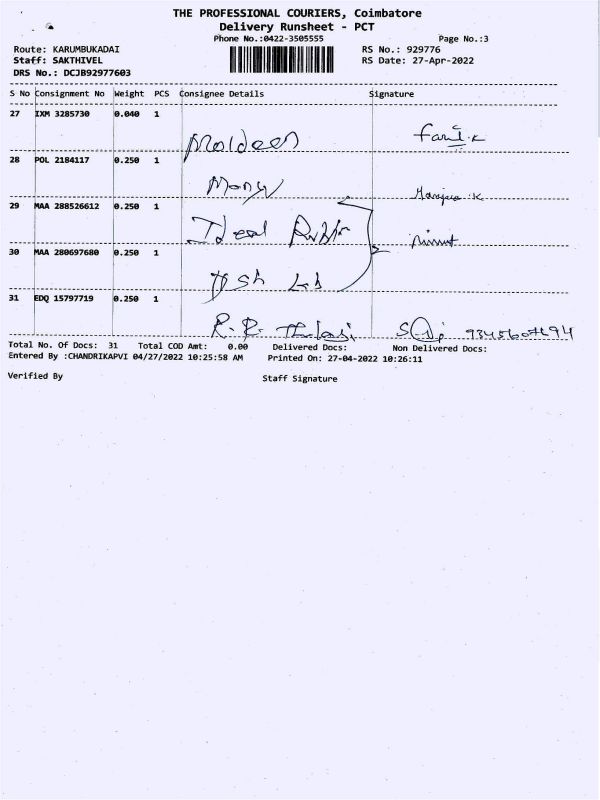 THE PROFESSIONAL COURIERS, Coimbatore
Delivery Runsheet - PCT
Phone No.:0422-3505555 Page No.:3
Route: KARUMBUKADAI RS No.: 929776
Staff: SAKTHIVEL RS Date: 27-Apr-2022
DRS No.: DCJB92977603
S No Consignment No Weight PCS Consignee Details Signature
27 IXM 3285730 0.040 1
Moideen
28 POL 2184117 0.250 1
Mony
29 MAA 288526612 0.250 1
Ideal
30 MAA 280697680 0.250 1
31 EDQ 15797719 0.250 1
R.R.
Total No. Of Docs: 31 Total COD Amt: 0.00 Delivered Docs: Non Delivered Docs:
Entered By :CHANDRIKAPVI 04/27/2022 10:25:58 AM Printed On: 27-04-2022 10:26:11
Verified By Staff Signature